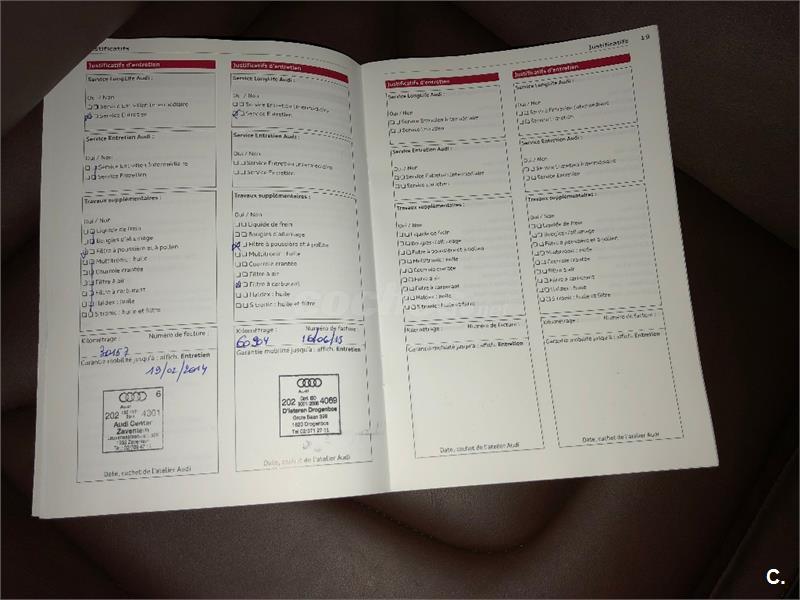 Justificatifs
Justificatifs d'entretien
Service LongLife Audi :
Oui / Non
Service Entretien Intermédiaire
Service Entretien
Service Entretien Audi :
Oui / Non
Service Entretien Intermédiaire
Service Entretien
Travaux supplémentaires :
Oui / Non
Liquide de frein
Bougies d'allumage
Filtre à poussière et à pollen
Multitronic : huile
Courroie crantée
Filtre à air
Filtre à carburant
Haldex : huile
S tronic : huile et filtre
Kilométrage :
Numéro de facture :
30157
Garantie mobilité jusqu'à : affich. Entretien
19/02/2014
6
Audi
202
4301
Audi Center
Zaventem
Date, cachet de l'atelier Audi
Justificatifs d'entretien
Service LongLife Audi :
Oui / Non
Service Entretien Intermédiaire
Service Entretien
Service Entretien Audi :
Oui / Non
Service Entretien Intermédiaire
Service Entretien
Travaux supplémentaires :
Oui / Non
Liquide de frein
Bougies d'allumage
Filtre à poussière et à pollen
Multitronic : huile
Courroie crantée
Filtre à air
Filtre à carburant
Haldex : huile
S tronic : huile et filtre
Kilométrage :
Numéro de facture :
60904
16/06/15
Garantie mobilité jusqu'à : affich. Entretien
Audi
202
4069
D'Ieteren Drogenbos
1620 Drogenbos
Date, cachet de l'atelier Audi
Justificatifs
19
Justificatifs d'entretien
Service LongLife Audi :
Oui / Non
Service Entretien Intermédiaire
Service Entretien
Service Entretien Audi :
Oui / Non
Service Entretien Intermédiaire
Service Entretien
Travaux supplémentaires :
Oui / Non
Liquide de frein
Bougies d'allumage
Filtre à poussière et à pollen
Multitronic : huile
Courroie crantée
Filtre à air
Filtre à carburant
Haldex : huile
S tronic : huile et filtre
Kilométrage :
Numéro de facture :
Garantie mobilité jusqu'à : affich. Entretien
Date, cachet de l'atelier Audi
Justificatifs d'entretien
Service LongLife Audi :
Oui / Non
Service Entretien Intermédiaire
Service Entretien
Service Entretien Audi :
Oui / Non
Service Entretien Intermédiaire
Service Entretien
Travaux supplémentaires :
Oui / Non
Liquide de frein
Bougies d'allumage
Filtre à poussière et à pollen
Multitronic : huile
Courroie crantée
Filtre à air
Filtre à carburant
Haldex : huile
S tronic : huile et filtre
Kilométrage :
Numéro de facture :
Garantie mobilité jusqu'à : affich. Entretien
Date, cachet de l'atelier Audi
C.